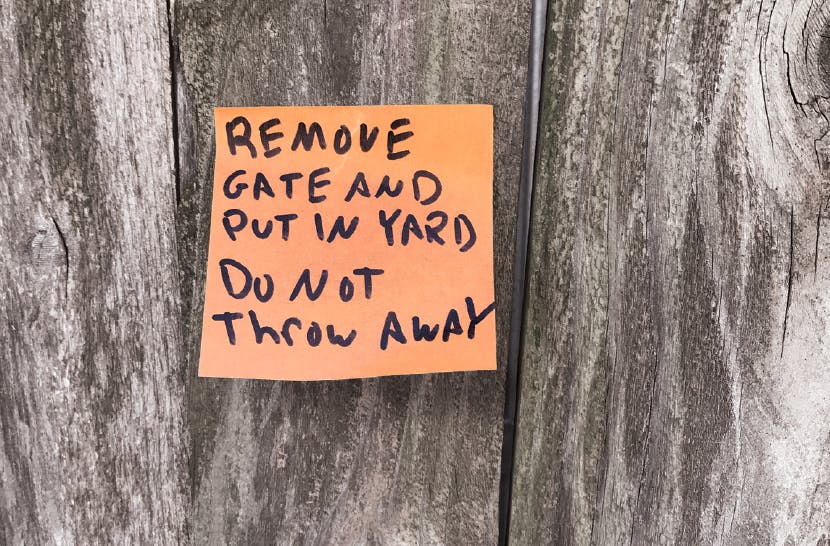 REMOVE
GATE AND
PUT IN YARD
DO NOT
Throw AWAY